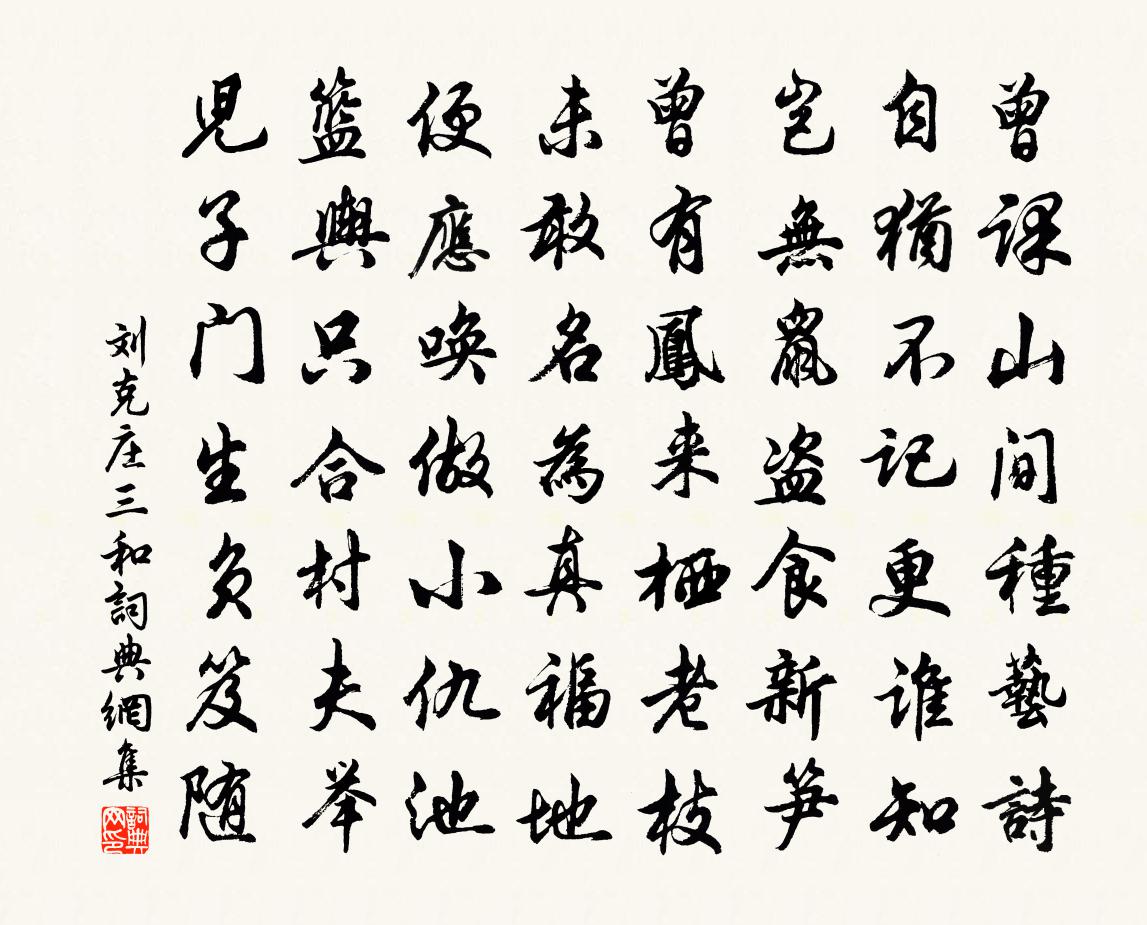 曾課山間種藝詩
自猶不記更誰知
豈無鼠盗食新笋
曾有鳳来栖老枝
未敢名為真福地
便應唤做小仇池
籃輿只合村夫举
児子门生负笈随
刘克庄三和詞典網集
詞典网印